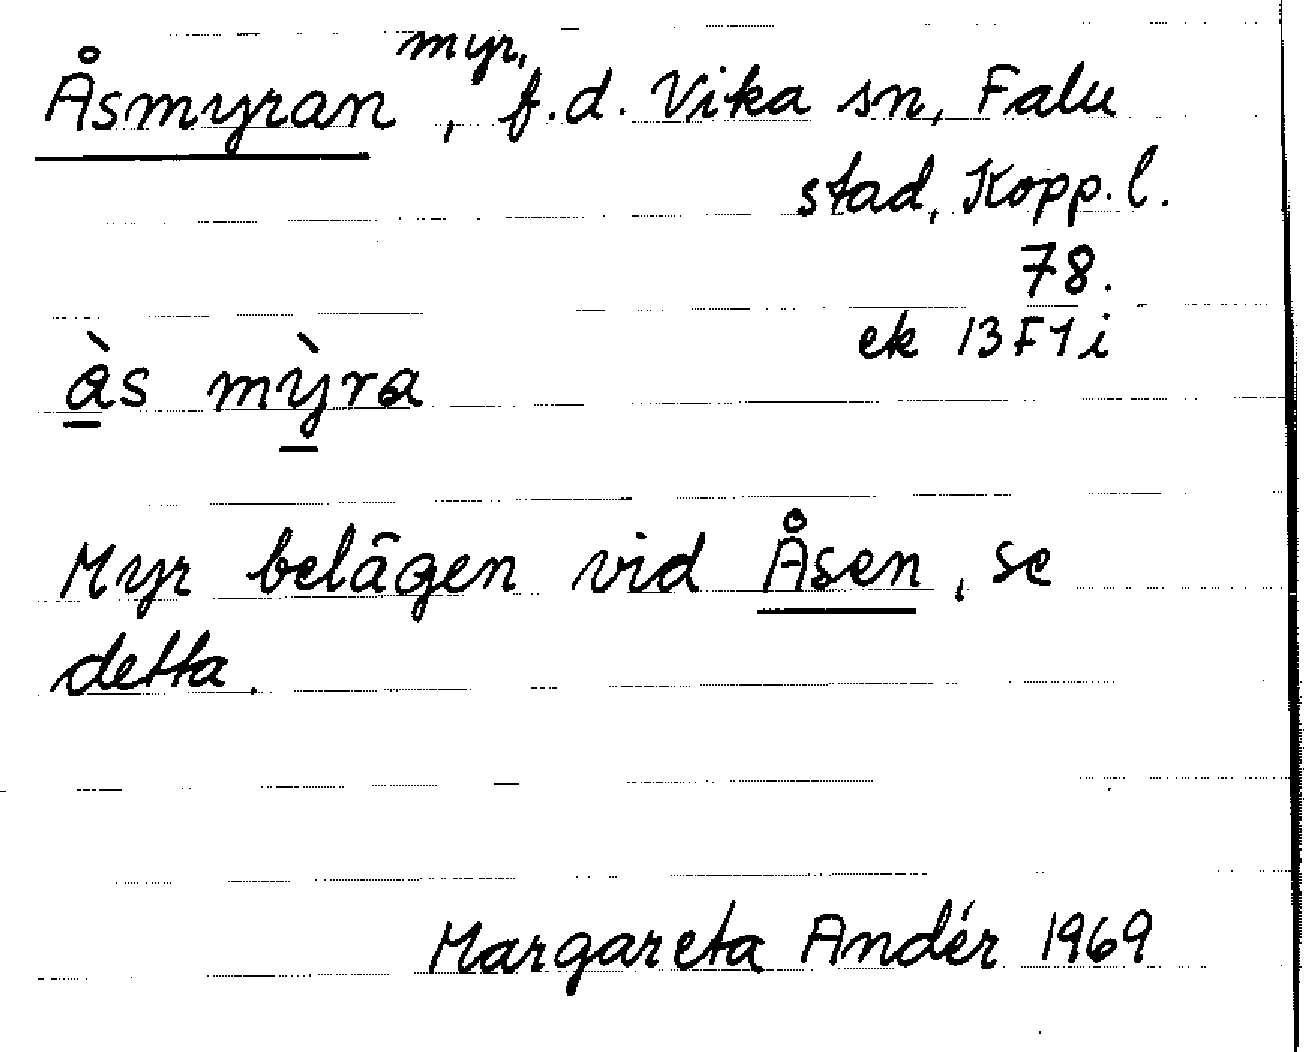 Åsmyran, myr, f.d. Vika sn, Falu
stad, Kopp.l.
78.
ek 13F1i
às mỳra
Myr belägen vid Åsen, se
detta.
Margareta Andér 1969